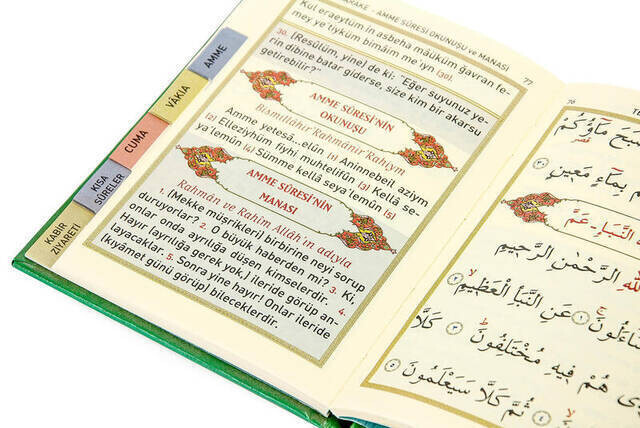 AMME SÛRESİ OKUNUŞU Ve MANASI
77
Kul eraeytüm in asbeha mâüküm ğavran fe-
mey ye'tiyküm bimâim me'iyn (30).
30. (Resûlüm, yine) de ki: "Eğer suyunuz ye-
rin dibine batar giderse, size kim bir akarsu
getirebilir?"
AMME SÛRESİ'NİN
OKUNUŞU
Bismillâhir'Rahmânir'Rahıym
Amme yetesâ..elûn (1) Aninnebeil, azıym
(2) Elleziyhüm fiyhi muhtelifûn (3) Kellâ se-
ya'lemûn (4) Sümme kellâ seya'lemûn (5)
AMME SÛRESİ'NİN
MANASI
Rahmân ve Rahîm Allâh'ın adıyla
1. (Mekke müşrikleri) birbirine neyi sorup
duruyorlar? 2. O büyük haberden mi? 3. Ki,
onlar onda ayrılığa düşen kimselerdir. 4.
Hayır (ayrılığa gerek yok,) ileride görüp an-
layacaklar. 5. Sonra yine hayır! Onlar ileride
(kıyâmet günü görüp) bileceklerdir.
AMME
VÂKIA
CUMA
KISA
SÛRELER
KABİR
ZİYARETİ
مَاؤُكُمْ
بِمَاءٍ مَعِينٍ
النَّبَأِ عَمَّ
الرَّحْمٰنِ الرَّحِيمِ
عَنِ النَّبَأِ الْعَظِيمِ
هُمْ فِيهِ مُخْتَلِفُونَ ٣ كَلَّا
ثُمَّ كَلَّا سَيَعْلَمُونَ ٥